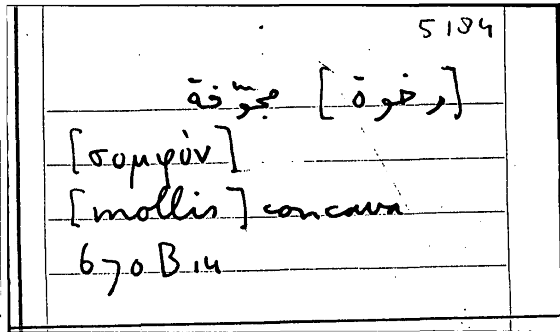 5184
[رخوة] مجوّفة
[σομφόν]
[mollis] concava
670 B 14